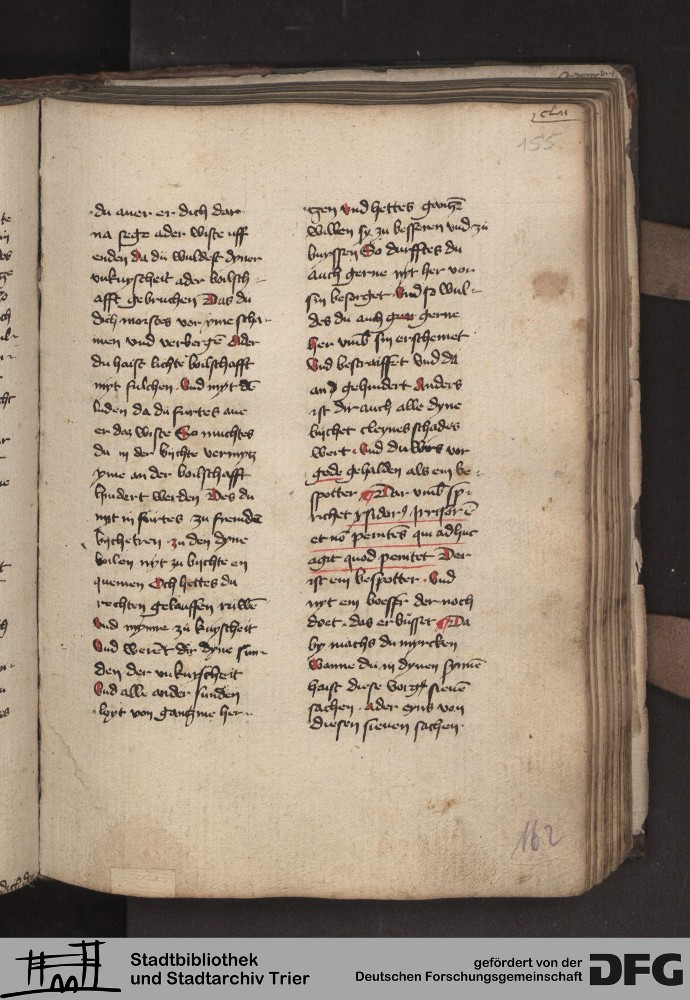 155
du auer er dich dar
na sege ader wiste uff
enden Da du wuldest dyner
vnkuyscheit ader boilsch-
afft gebruchen Das du
dich morstes vor yme scha-
men vnd verbergē Ader
du haist lichte boilschafft
myt sulchen. Vnd myt dē
luden da du furtes aue
er daz wiste So muchtes
du in der bichte vermytz
yme an der boilschafft
hindert werden Des du
nyt in furtes zu fremdē
bychetren. zu den dyne
boilen nyt zu bychte en
quemen Och hettes du
rechten gelauffen ruwē
Vnd mynne zu kuyscheit
Vnd werēt dir dyne sun-
den der vnkuyscheit
Vnd alle ander sunden
leyt von gantzme her-
tzen Vnd hettes gantzē
willen sy zu besseren vnd zu
buyssen So durfftes du
Auch gerne nyt her vor
sin besorget. Vnd so wul-
des du auch gerne
her vmb sin erschemet
Vnd bestraiffet Vnd da
an gehindert Anders
ist dir auch alle dyne
bychet cleynes schades
wert. Vnd du wirs vor
gode gehalden als ein be-
spotter Dar vmb sp-
richet ysidorus Irrisor ē
et nō penitēs qui adhuc
agit quod penitet Der
ist ein bespotter. Vnd
nyt ein boesser der noch
doet. das er busset Da
by machs du myrcken
Wanne du in dynen synnē
haist diese vorgē sieuē
sachen. Ader eyns von
diesen sieuen sachen.
162
Stadtbibliothek
und Stadtarchiv Trier
gefördert von der
Deutschen Forschungsgemeinschaft
DFG